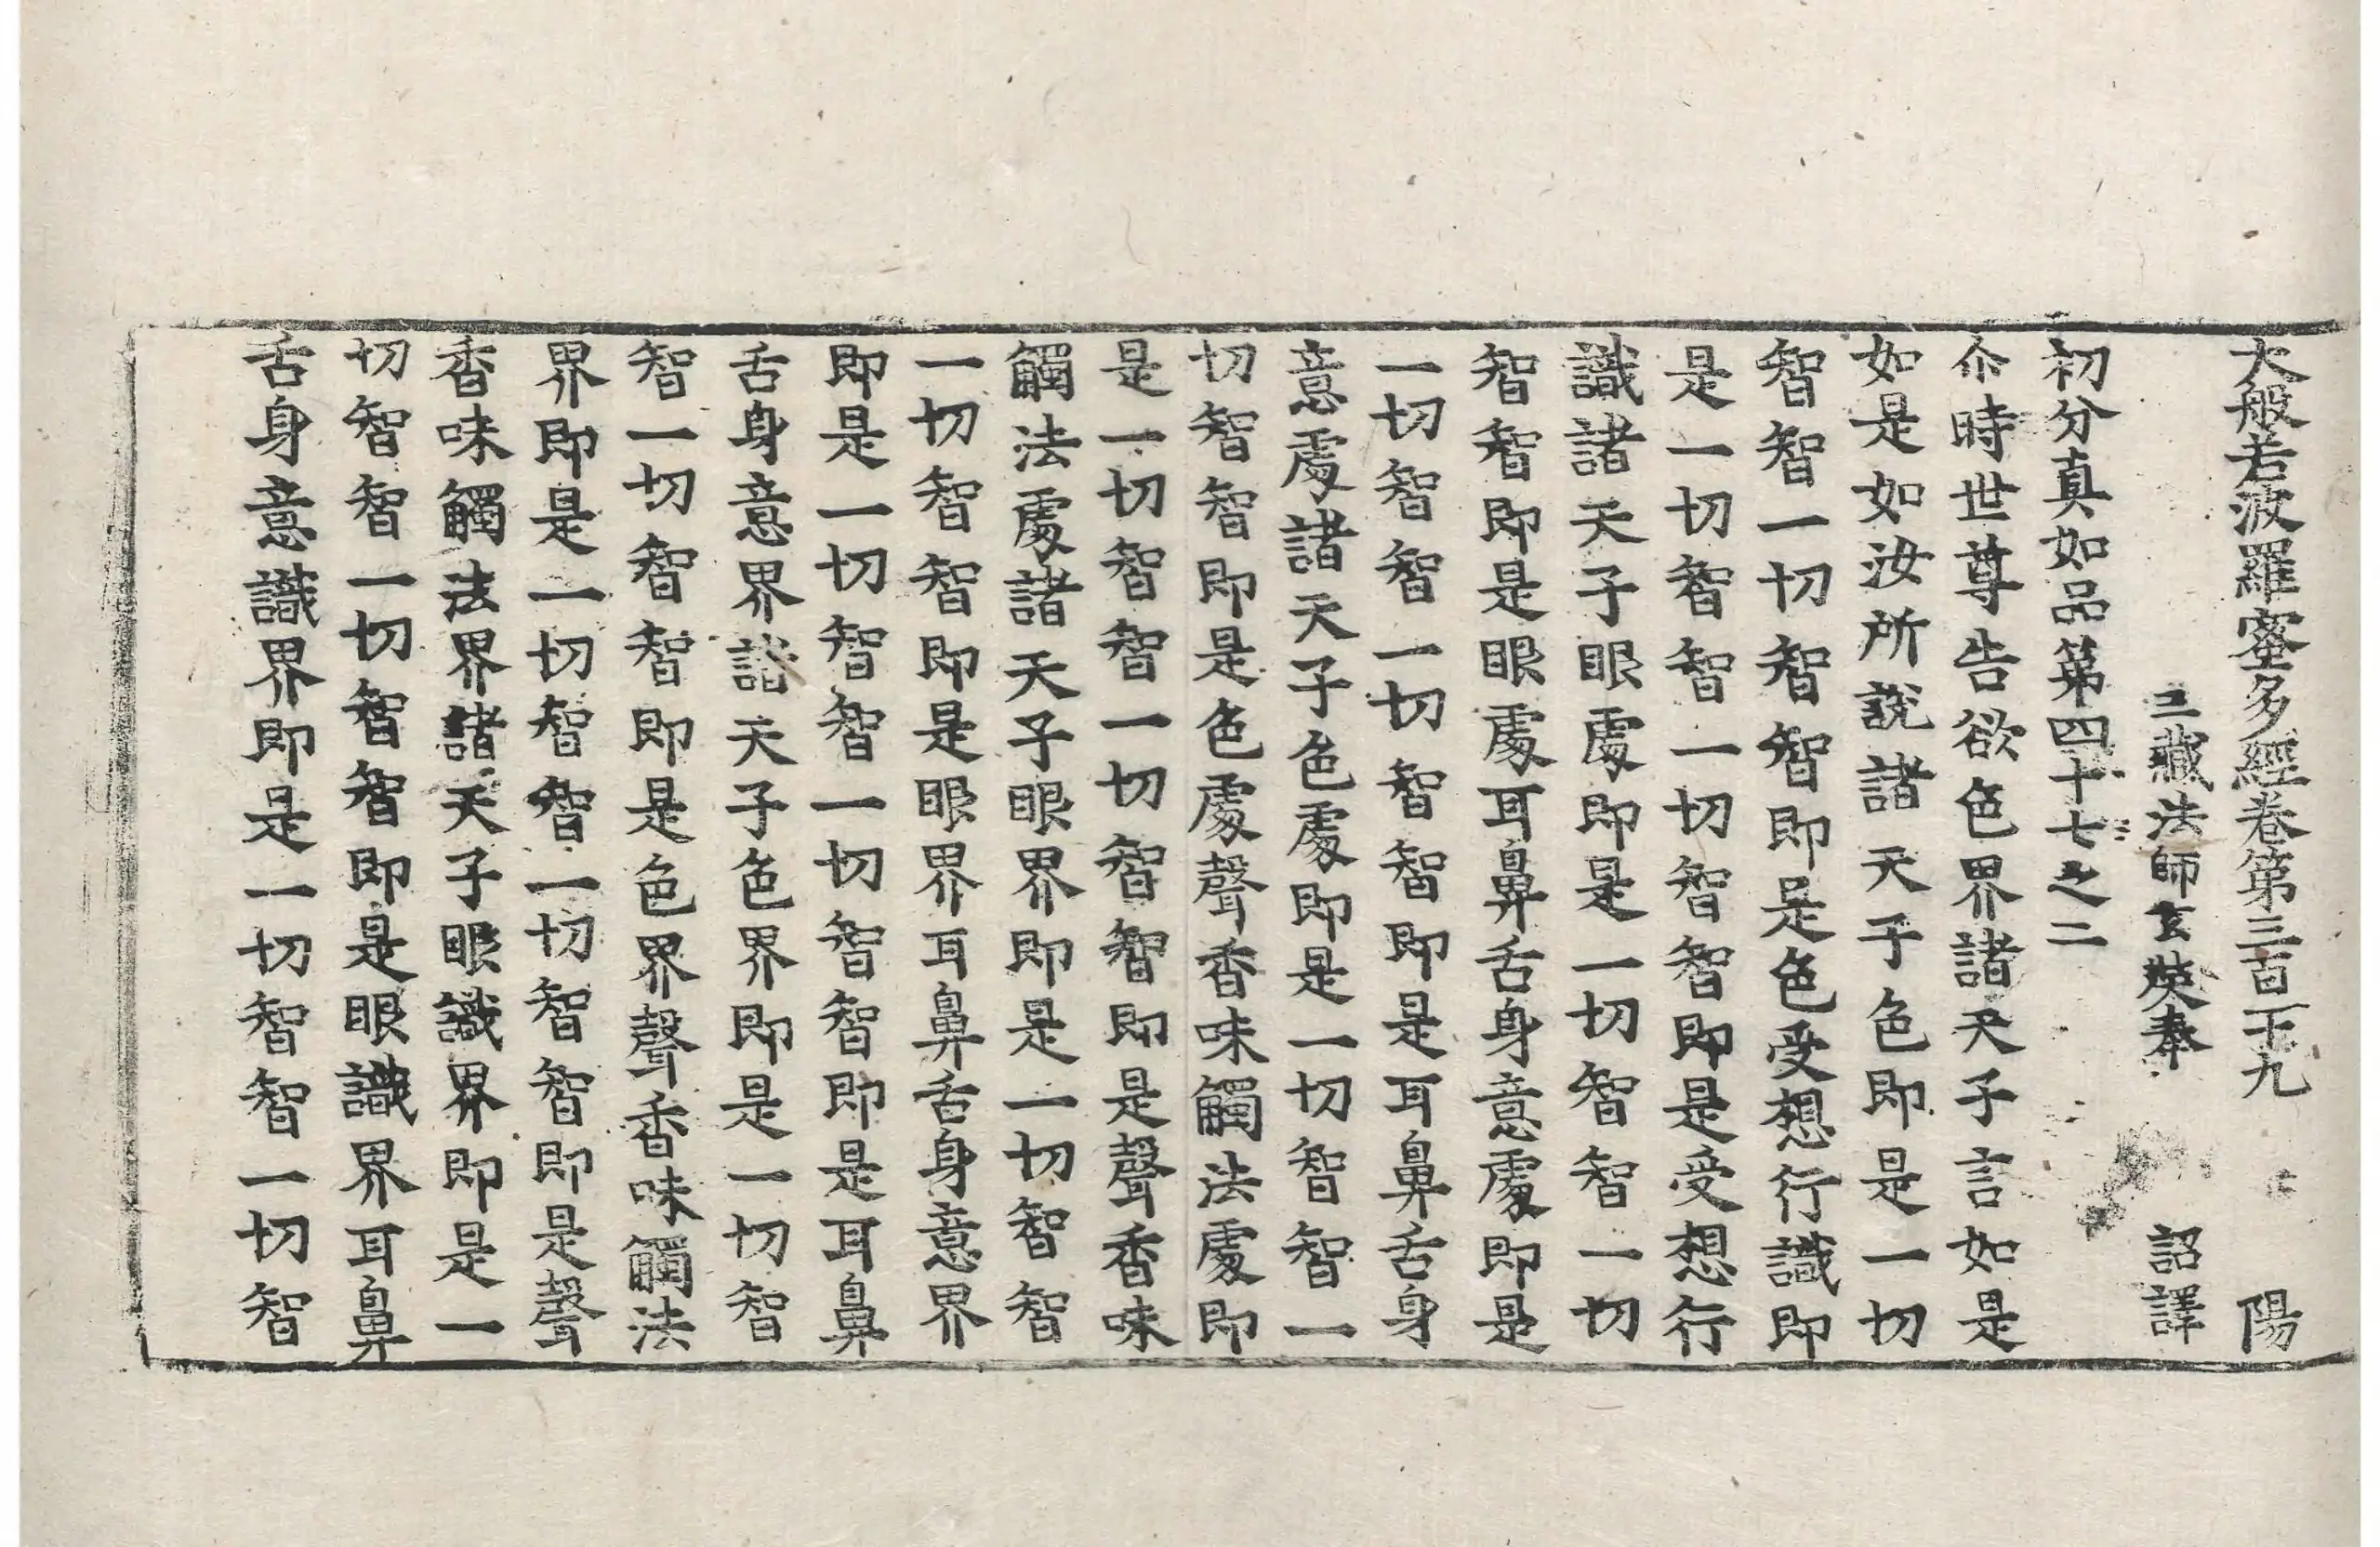 大般若波羅蜜多經卷第三百一十九 陽
三藏法師玄奘奉 詔譯
初分真如品第四十七之二
尒時世尊告欲色界諸天子言如是
如是如汝所說諸天子色即是一切
智智一切智智即是色受想行識即
是一切智智一切智智即是受想行
識諸天子眼處即是一切智智一切
智智即是眼處耳鼻舌身意處即是
一切智智一切智智即是耳鼻舌身
意處諸天子色處即是一切智智一
切智智即是色處聲香味觸法處即
是一切智智一切智智即是聲香味
觸法處諸天子眼界即是一切智智
一切智智即是眼界耳鼻舌身意界
即是一切智智一切智智即是耳鼻
舌身意界諸天子色界即是一切智
智一切智智即是色界聲香味觸法
界即是一切智智一切智智即是聲
香味觸法界諸天子眼識界即是一
切智智一切智智即是眼識界耳鼻
舌身意識界即是一切智智一切智